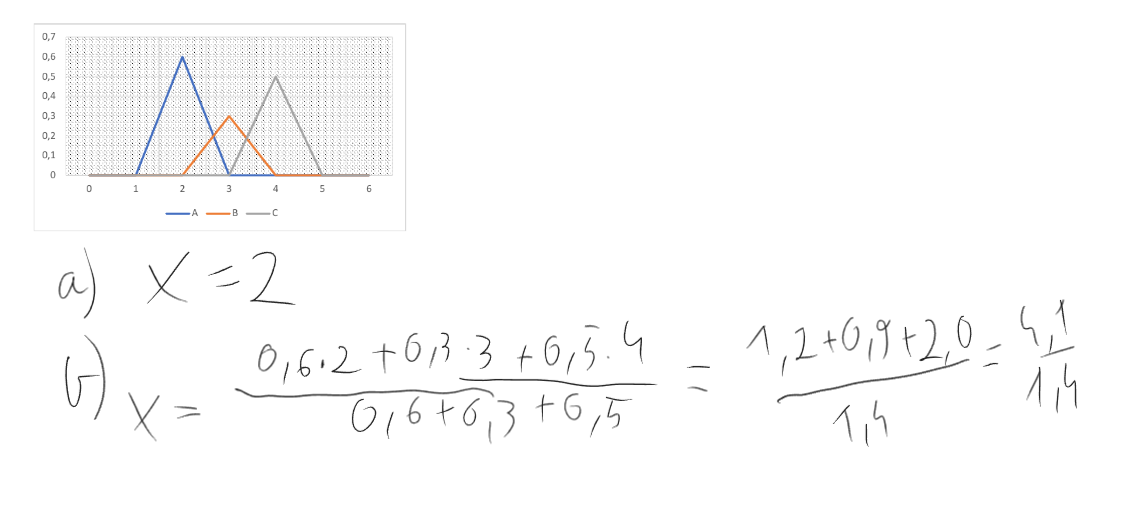 0,7
0,6
0,5
0,4
0,3
0,2
0,1
0
0 1 2 3 4 5 6
A B C
a) X = 2
b) X = (0,6·2 + 0,3·3 + 0,5·4) / (0,6 + 0,3 + 0,5) = (1,2 + 0,9 + 2,0) / 1,4 = 4,1 / 1,4